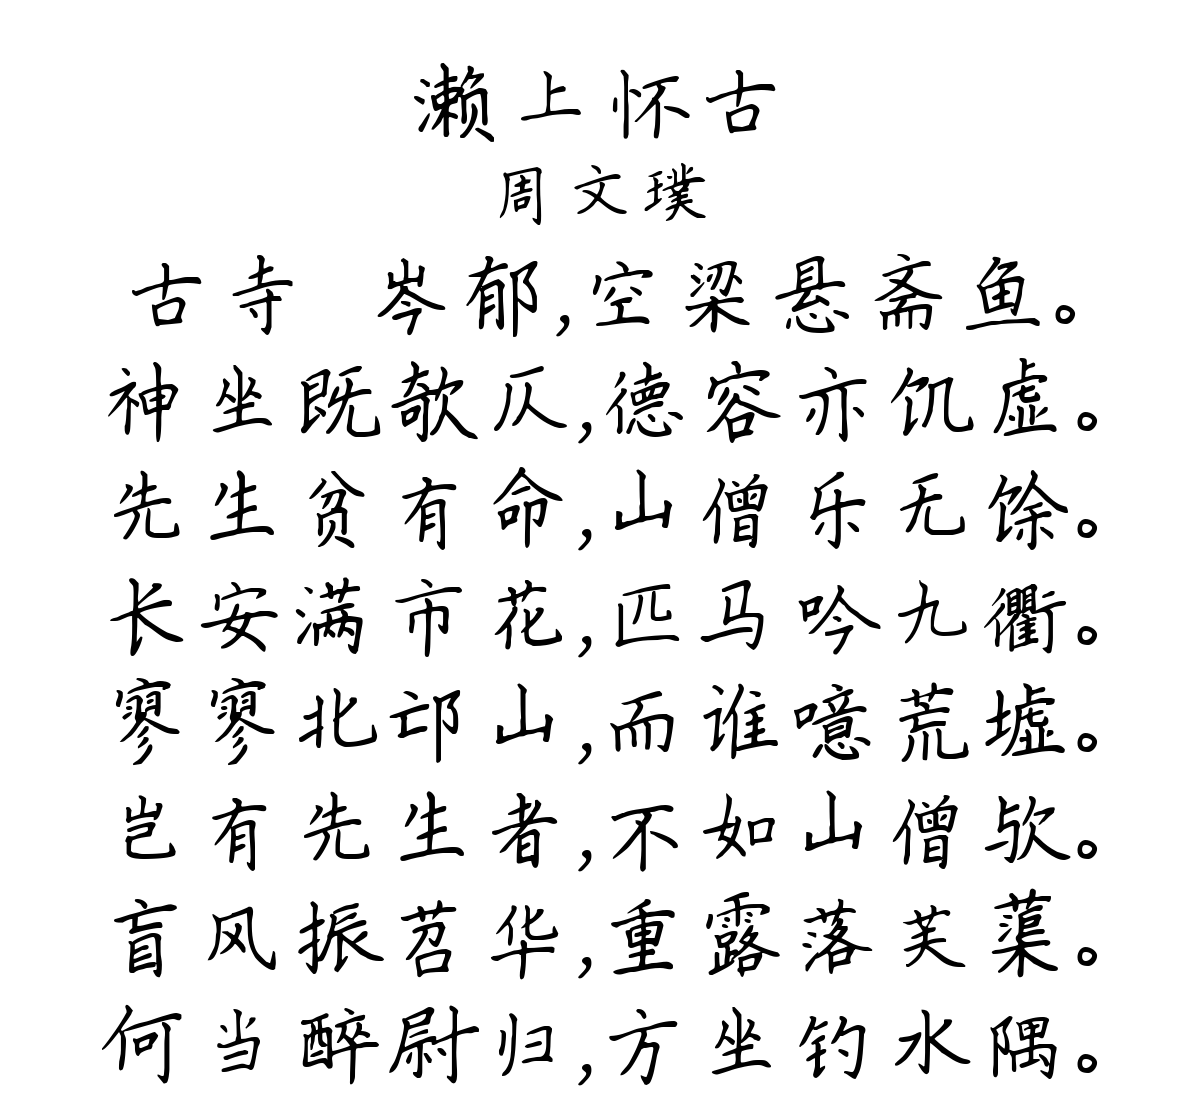 濑上怀古
周文璞
古寺 岑郁,空梁悬斋鱼。
神坐既欹仄,德容亦饥虚。
先生贫有命,山僧乐无馀。
长安满市花,匹马吟九衢。
寥寥北邙山,而谁噫荒墟。
岂有先生者,不如山僧欤。
盲风振苕华,重露落芙蕖。
何当醉尉归,方坐钓水隅。